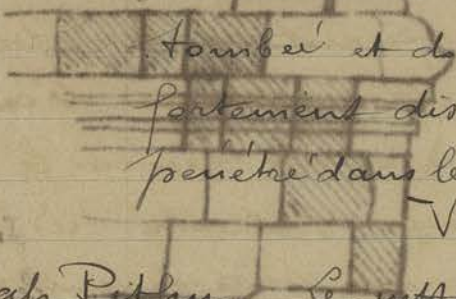 tombée et do
fortement dis
pénétré dans le
V